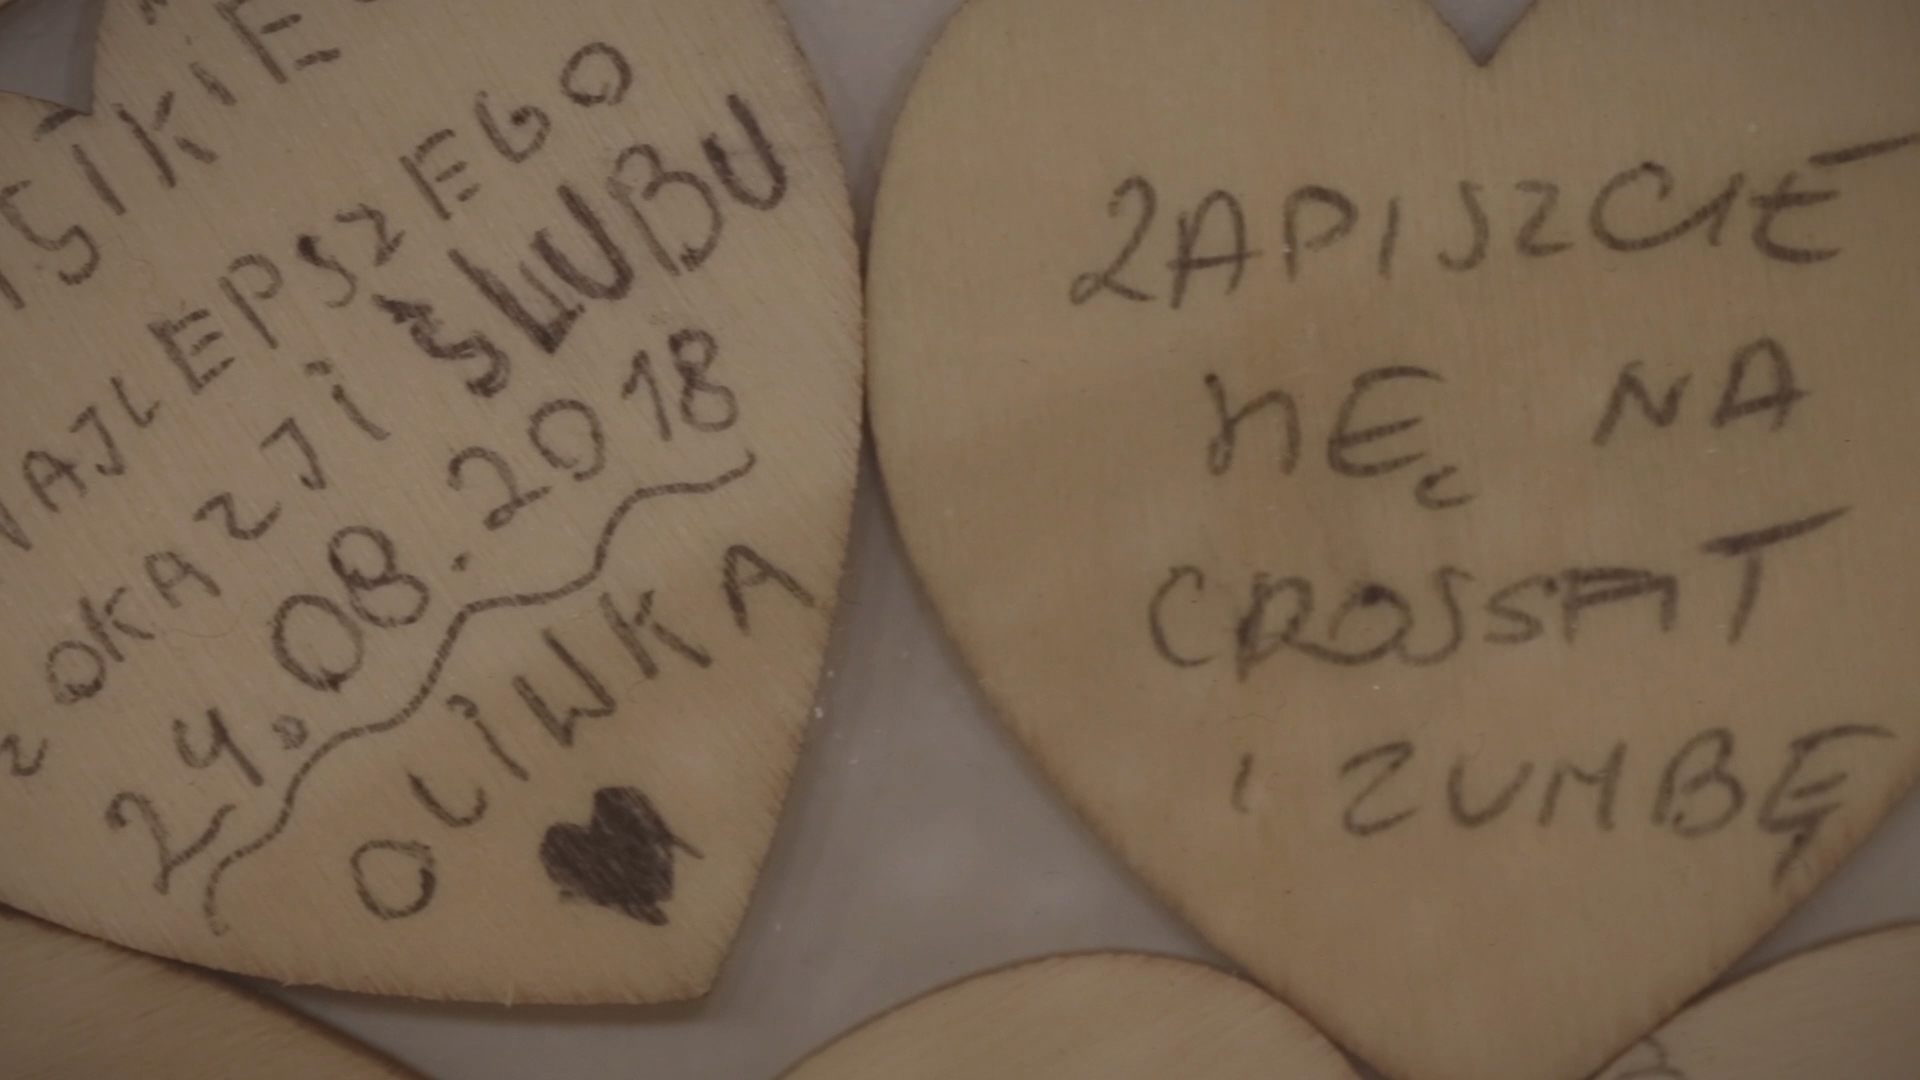 NAJLEPSZEGO
Z OKAZJI ŚLUBU
24.08.2018
OLIWKA
ZAPISZCIE
MĘ NA
CROSSFIT
I ZUMBĘ